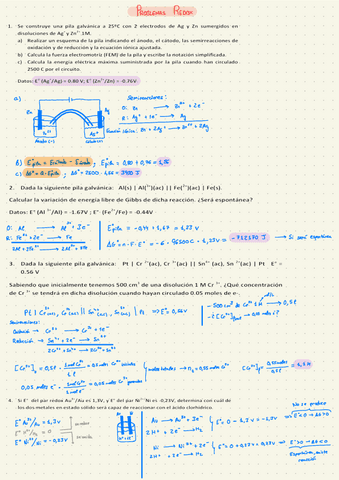 PROBLEMAS REDOX
1. Se construye una pila galvánica a 25ºC con 2 electrodos de Ag y Zn sumergidos en
disoluciones de Ag⁺ y Zn²⁺ 1M.
a) Realizar un esquema de la pila indicando el ánodo, el cátodo, las semirreacciones de
oxidación y de reducción y la ecuación iónica ajustada.
b) Calcula la fuerza electromotriz (FEM) de la pila y escribe la notación simplificada.
c) Calcula la energía eléctrica máxima suministrada por la pila cuando han circulado
2500 C por el circuito.
Datos: E° (Ag⁺/Ag) = 0.80 V; E° (Zn²⁺/Zn) = -0.76V
a)
Semirreacciones:
O: Zn → Zn²⁺ + 2e⁻
R: Ag⁺ + 1e⁻ → Ag
Zn + 2Ag⁺ → Zn²⁺ + 2Ag
Zn
Ag
Zn²⁺
Ag⁺
Ánodo (-)
Cátodo (+)
b) E°pila = E°cátodo - E°ánodo; E°pila = 0,80 + 0,76 = 1,56
2. Dada la siguiente pila galvánica: Al(s) | Al³⁺(ac) | Fe²⁺(ac) | Fe(s).
Calcular la variación de energía libre de Gibbs de dicha reacción. ¿Será espontánea?
Datos: E° (Al³⁺/Al) = -1.67V ; E° (Fe²⁺/Fe) = -0.44V
O: Al → Al³⁺ + 3e⁻
E°pila = -0,44 + 1,67 = 1,23 V
R: Fe²⁺ + 2e⁻ → Fe
ΔG° = -n·F·E° = -6·96500C·1,23V →
Si será espontánea
3. Dada la siguiente pila galvánica: Pt | Cr²⁺(ac), Cr³⁺(ac) || Sn⁴⁺(ac), Sn²⁺(ac) | Pt E° =
0.56 V
Sabiendo que inicialmente tenemos 500 cm³ de una disolución 1 M Cr²⁺. ¿Qué concentración
de Cr²⁺ se tendrá en dicha disolución cuando hayan circulado 0.05 moles de e-.
Pt | Cr²⁺(ac), Cr³⁺(ac) || Sn⁴⁺(ac), Sn²⁺(ac) | Pt ⇒ E° = 0,56V
Semirreacciones:
Oxidación → Cr²⁺ → Cr³⁺ + 1e⁻
Reducción → Sn⁴⁺ + 2e⁻ → Sn²⁺
2Cr²⁺ + Sn⁴⁺ → 2Cr³⁺ + Sn²⁺
4. Si E° del par redox Au³⁺/Au es 1,5V, y E° del par Ni²⁺/Ni es -0,23V, determina con cuál de
los dos metales en estado sólido será capaz de reaccionar con el ácido clorhídrico.
E° Au³⁺/Au = 1,5V
E° H⁺/H₂ = 0
E° Ni²⁺/Ni = -0,23V
Au → Au³⁺ + 3e⁻
2H⁺ + 2e⁻ → H₂
E° = 0 - 1,5V = -1,5V
No se produce
Ni → Ni²⁺ + 2e⁻
2H⁺ + 2e⁻ → H₂
E° = 0 + 0,23V = 0,23V